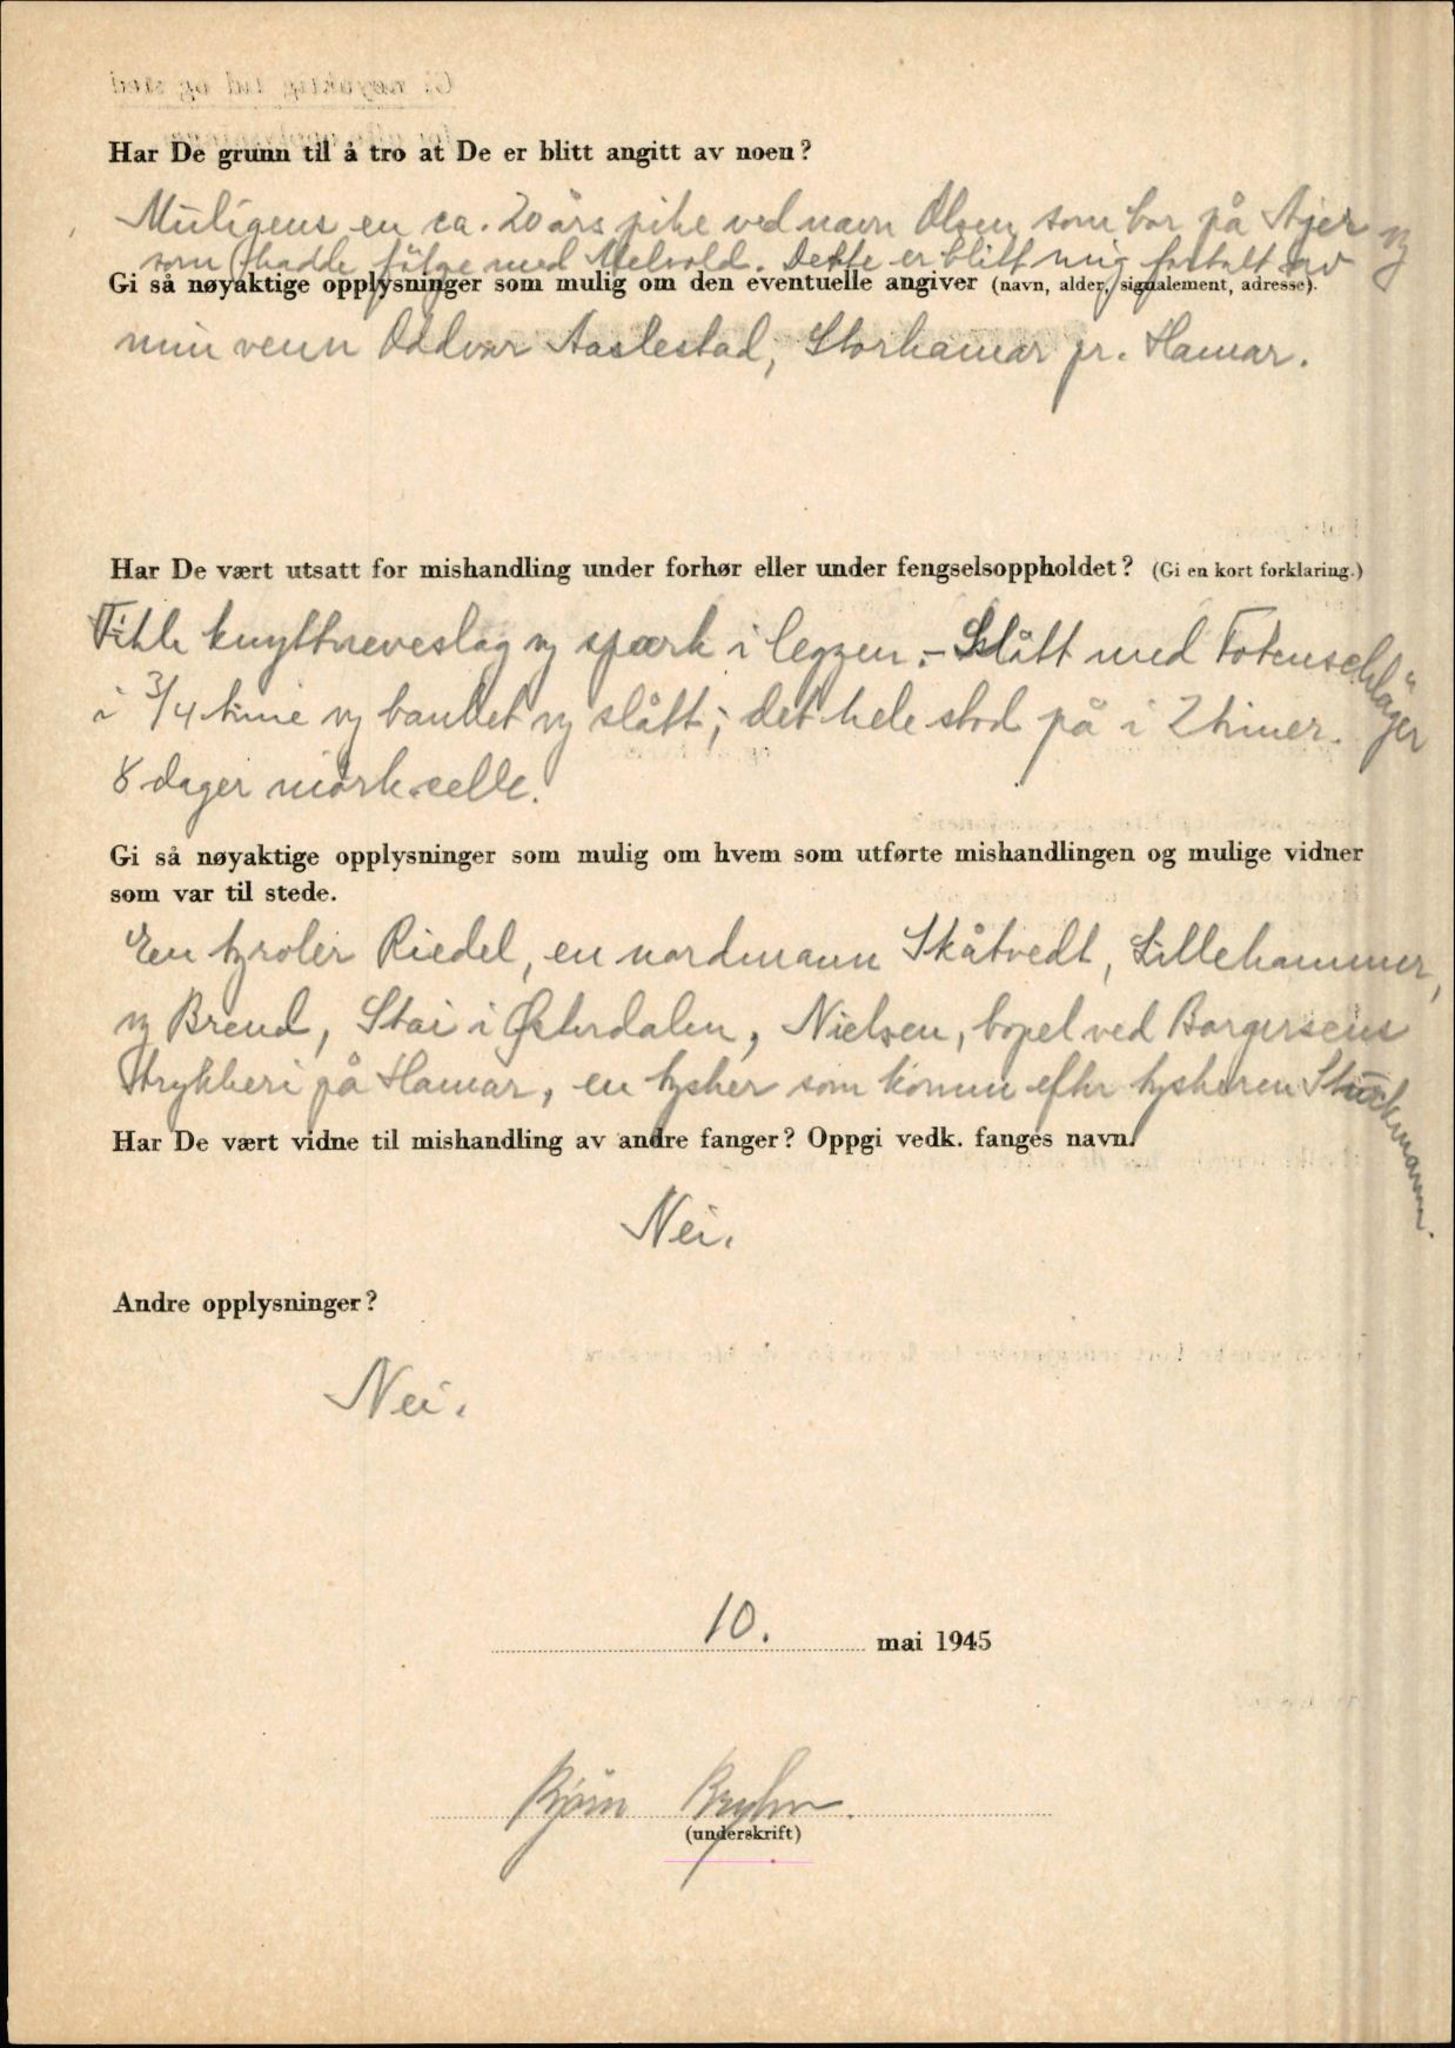 Har De grunn til å tro at De er blitt angitt av noen?
Muligens en ca. 20 års pike ved navn Olsen som bor på Ajer og
som hadde følge med Melvold. Dette er blitt mig fortalt av
Gi så nøyaktige opplysninger som mulig om den eventuelle angiver (navn, alder, signalement, adresse).
min venn Oddvar Aaslestad, Storhamar pr. Hamar.
Har De vært utsatt for mishandling under forhør eller under fengselsoppholdet? (Gi en kort forklaring.)
Fikk knyttneveslag og spark i leggen. - Slått med Totenschläger
i 3/4 time og banket og slått; det hele stod på i 2 timer.
8 dager mørk celle.
Gi så nøyaktige opplysninger som mulig om hvem som utførte mishandlingen og mulige vidner
som var til stede.
En tyroler Riedel, en nordmann Skåtvedt, Lillehammer,
og Brend, Stai i Østerdalen, Nielsen, bopel ved Borgersens
Strykkeri på Hamar, en tysker som kom efter tyskeren Stuckmann.
Har De vært vidne til mishandling av andre fanger? Oppgi vedk. fanges navn.
Nei.
Andre opplysninger?
Nei.
10. mai 1945
Bjørn Bryhn.
(underskrift)